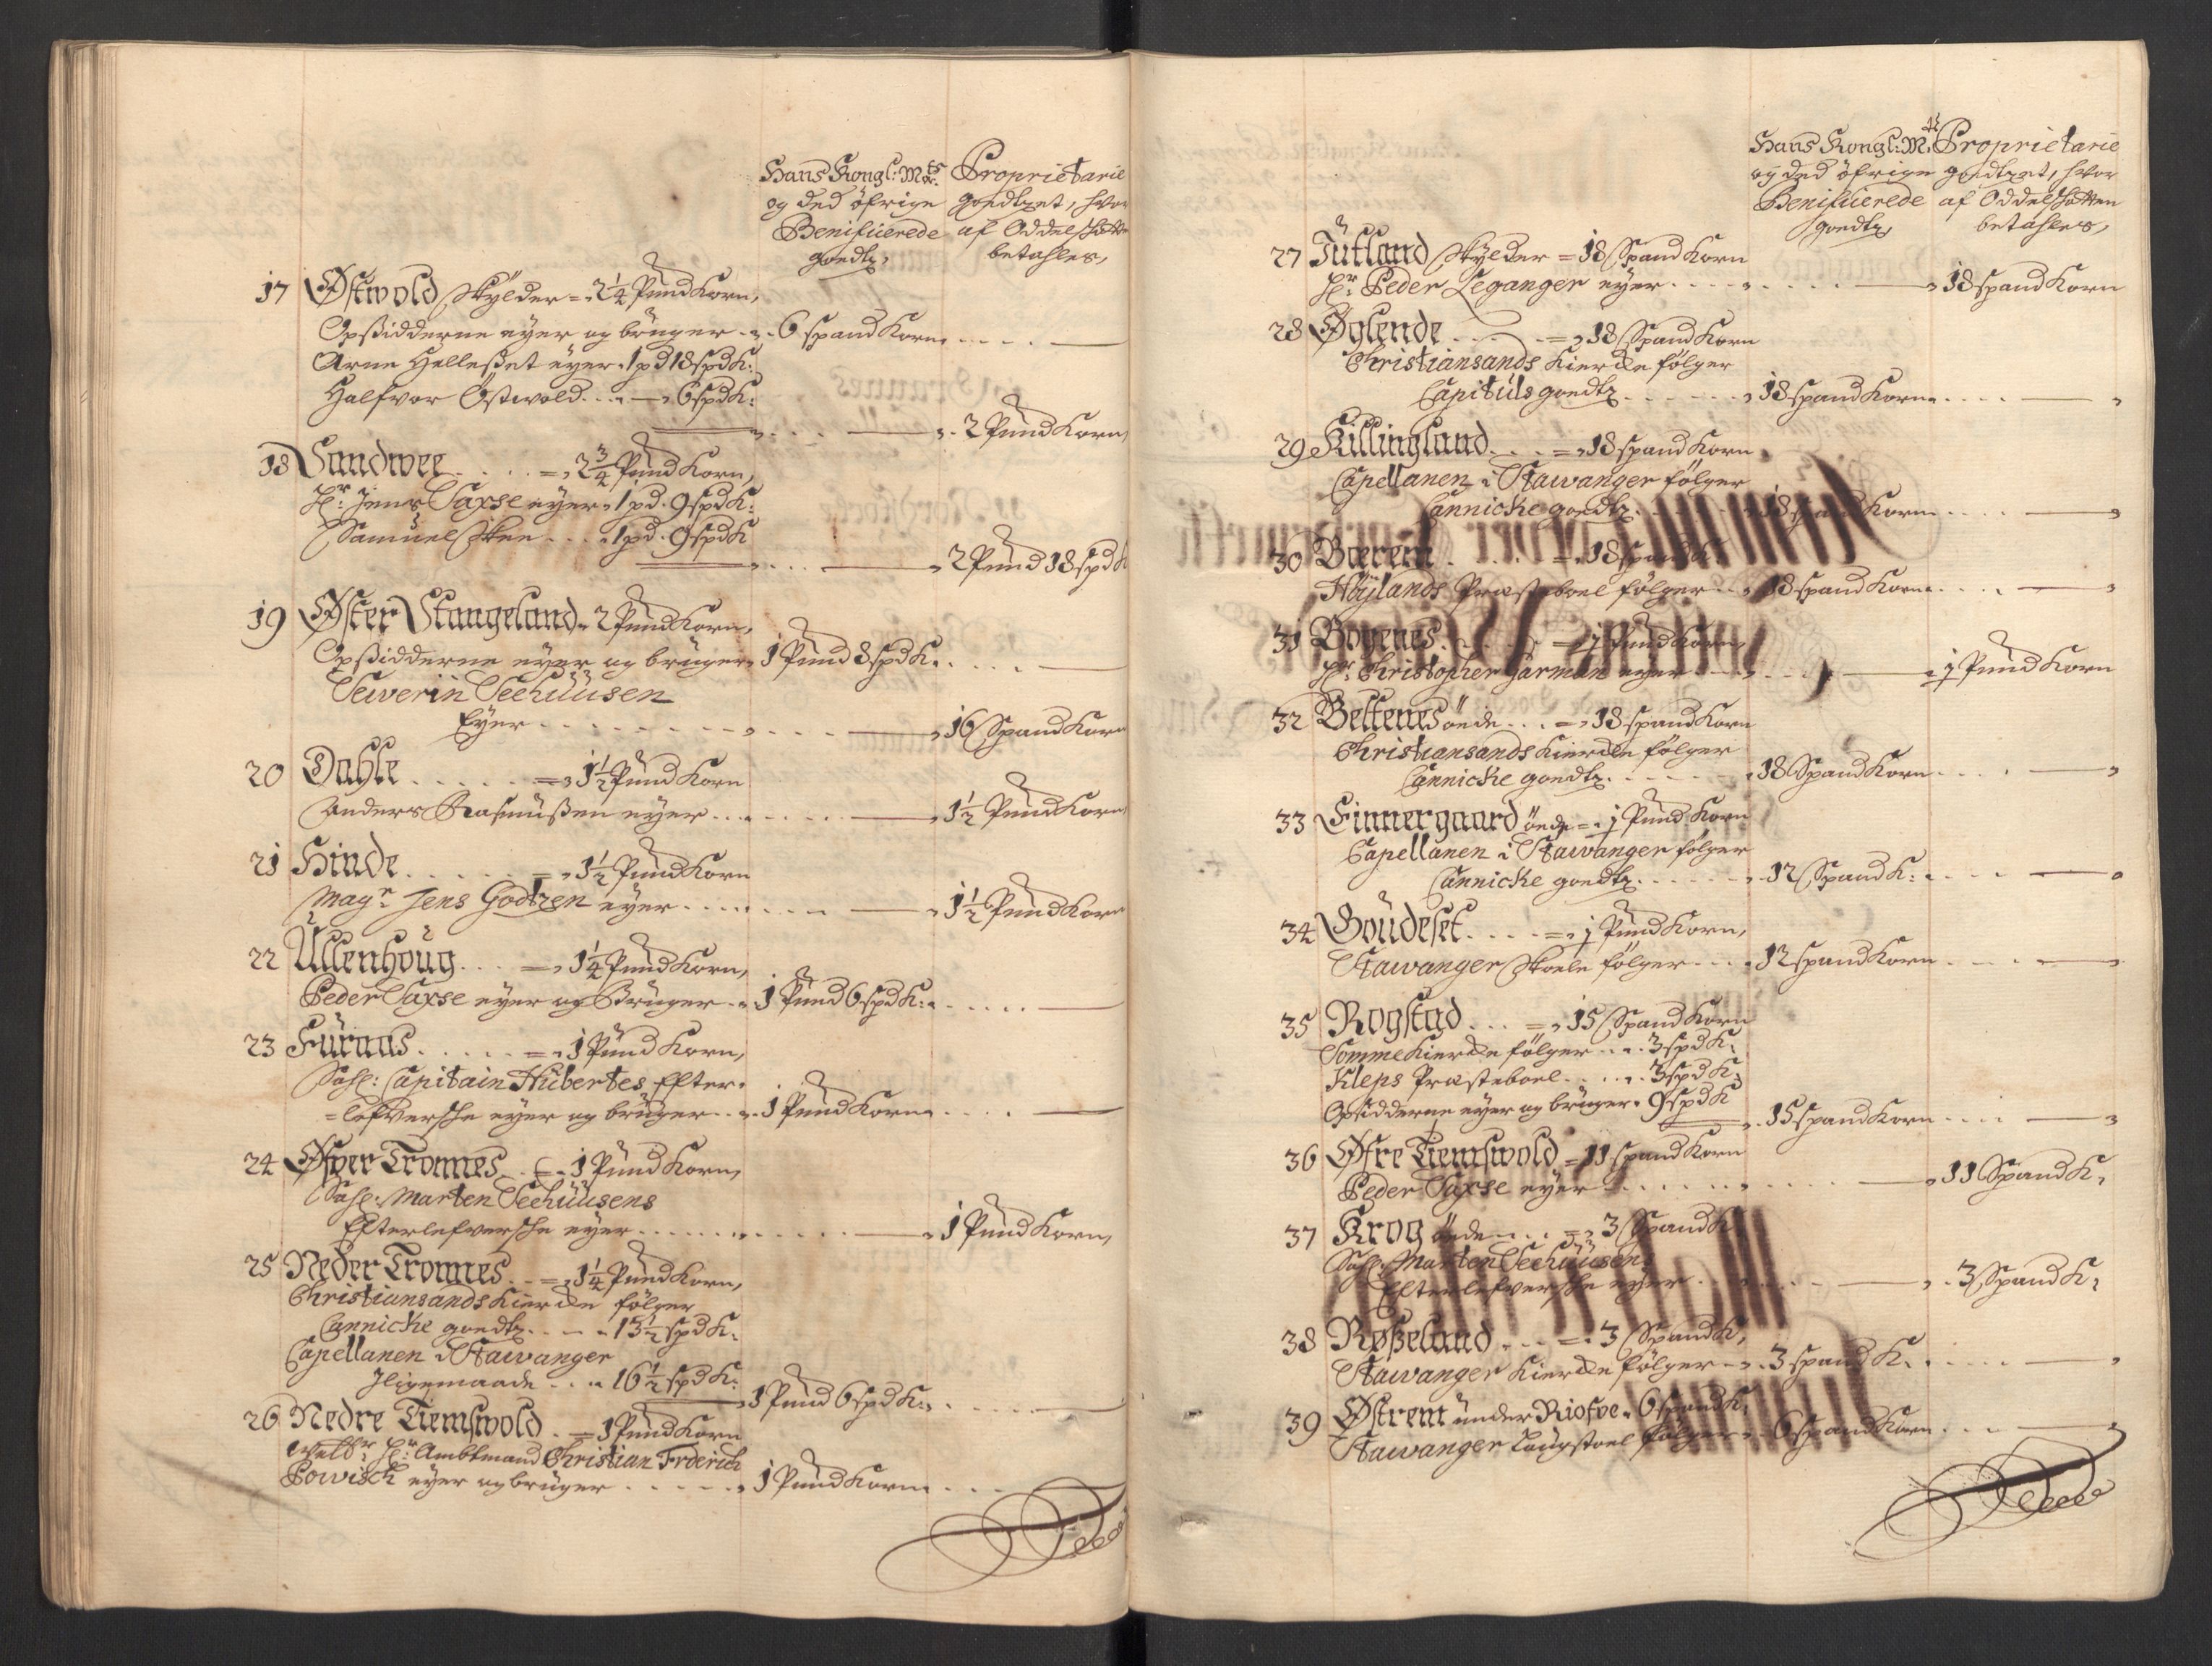 Hans Kongl: Mts Proprietarie
og ded öfrige goedtzet, hvor
Benificerede af Oddelskatten
goedtz, betahles,
17 Østwold Skÿlder = 2 1/4 Pund Korn,
Opsidderne eÿer og brüger 6 spand Korn
Arne Hellesøet eÿer 1 pd 18 spd K:
Halfvor Östwold 6 spd K:
2 Pund Korn,
18 Sandwee = 2 3/4 Pund Korn,
Hr: Jens Saxse eÿer 1 pd. 9 spd K:
Samuel Skeen 1 pd. 9 spd K
2 Pund 18 spd K
19 Øster Stangeland 2 Pund Korn,
Opsidderne eÿer og brüger 1 Pund 8 spd K.
Sewerin Seehuusen
Eÿer 16 Spand Korn
20 Dahle = 1 1/2 Pund Korn
Anders Rasmussen eÿer 1 1/2 Pund Korn
21 Hinde = 1 1/2 Pund Korn
Magr Jens Godtzen eÿer 1 1/2 Pund Korn
22 Ullenhoug = 1 1/4 Pund Korn,
Peder Saxse eÿer og Brüger 1 Pund 6 spd K:
23 Furaas = 1 Pund Korn,
Sahl: Capitain Hübertes Effter-
=lefversche eÿer og brüger 1 Pund Korn
24 Øfver Tronnes = 1 Pund Korn,
Sahl. Marten Seehuusens
Efterlefversche eÿer 1 Pund Korn,
25 Neder Tronnes = 1 1/4 Pund Korn,
Christiansands Kiercke følger
Cannicke goedtz 13 1/2 spd K:
Capellanen i Stawanger
Iligemaade 16 1/2 spd K:
1 Pund 6 spd K:
26 Nedre Tiemswold = 1 Pund Korn
Welbr: Hr: Ambtmand Christian Frderich
Powisch eÿer og brüger 1 Pund Korn
Hans Kongl: Mts Proprietarie
og ded öfrige goedtzet, hvor
Benificerede af Oddelskatten
goedtz betahles,
27 Jütland Skÿlder = 18 Spand Korn
Hr: Peder Leganger eÿer 18 spand Korn
28 Øglende = 18 Spand Korn
Christiansands Kiercke følger
Capituls goedtz 18 spand Korn
29 Killingland = 18 spand Korn
Capellanen i Stawanger følger
Cannicke goedtz 18 spand Korn
30 Bærem = 18 spand K:
Høÿlands Præsteboel følger 18 spand Korn
31 Bogenes = 1 Pund Korn,
Hr: Christopher Garman eÿer 1 Pund Korn
32 Beltenes öede = 18 spand Korn
Christiansands Kiercke følger
Cannicke goedtz 18 Spand Korn
33 Finnergaard öede = 1 Pund Korn
Capellanen i Stawanger følger
Cannicke goedtz 12 Spand K:
34 Goudeset = 1 Pund Korn,
Stawanger Skoele følger 12 spand Korn
35 Rogstad = 15 Spand Korn
Somme Kiercke følger 3 spd K:
Kleps Præsteboel 3 spd K:
Opsidderne eÿer og brüger 9 spd K
15 spand Korn
36 Øfre Tiemswold = 11 spand Korn
Peder Saxse eÿer 11 Spand K,
37 Krog öede = 3 Spand K
Sahl. Marten Seehuusens
Efterlefversche eÿer 3 Spand K,
38 Røseland = 3 Spand K,
Stawanger Kiercke følger 3 spand K.
39 Østrem under Riosfve 6 spand K,
Stawanger Laugstoel følger 6 spand Korn